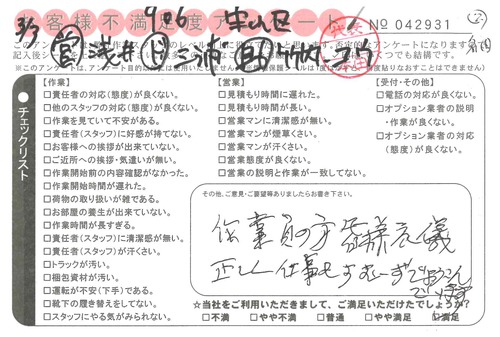 お客様不満足度アンケート
№ 042931
3/3
906
営 浅井 三浦
記入後
このアン
※このアンケートは、
チェックリスト
【作業】
□責任者の対応(態度)が良くない。
□他のスタッフの対応(態度)が良くない。
□作業を見ていて不安がある。
□責任者(スタッフ)に好感が持てない。
□お客様への挨拶が出来ていない。
□ご近所への挨拶・気遣いが無い。
□作業開始前の内容確認がなかった。
□作業開始時間が遅れた。
□荷物の取り扱いが雑である。
□お部屋の養生が出来ていない。
□作業時間が長すぎる。
□責任者(スタッフ)に清潔感が無い。
□責任者(スタッフ)が汗くさい。
□トラックが汚い。
□梱包資材が汚い。
□運転が不安(下手)である。
□靴下の履き替えをしてない。
□スタッフにやる気がみられない。
【営業】
□見積もり時間に遅れた。
□見積もり時間が長い。
□営業マンに清潔感が無い。
□営業マンが煙草くさい。
□営業マンが汗くさい。
□営業態度が良くない。
□営業の説明と作業が一致してない。
【受付・その他】
□電話の対応が良くない。
□オプション業者の説明
・作業が良くない。
□オプション業者の対応
(態度)が良くない。
その他、ご意見・ご要望等ありましたらお書き下さい。
作業員の方 皆様 礼儀
正しく 仕事も
☆当社をご利用いただきまして、ご満足いただけたでしょうか?
□不満 □やや不満 □普通 □やや満足 ☑満足